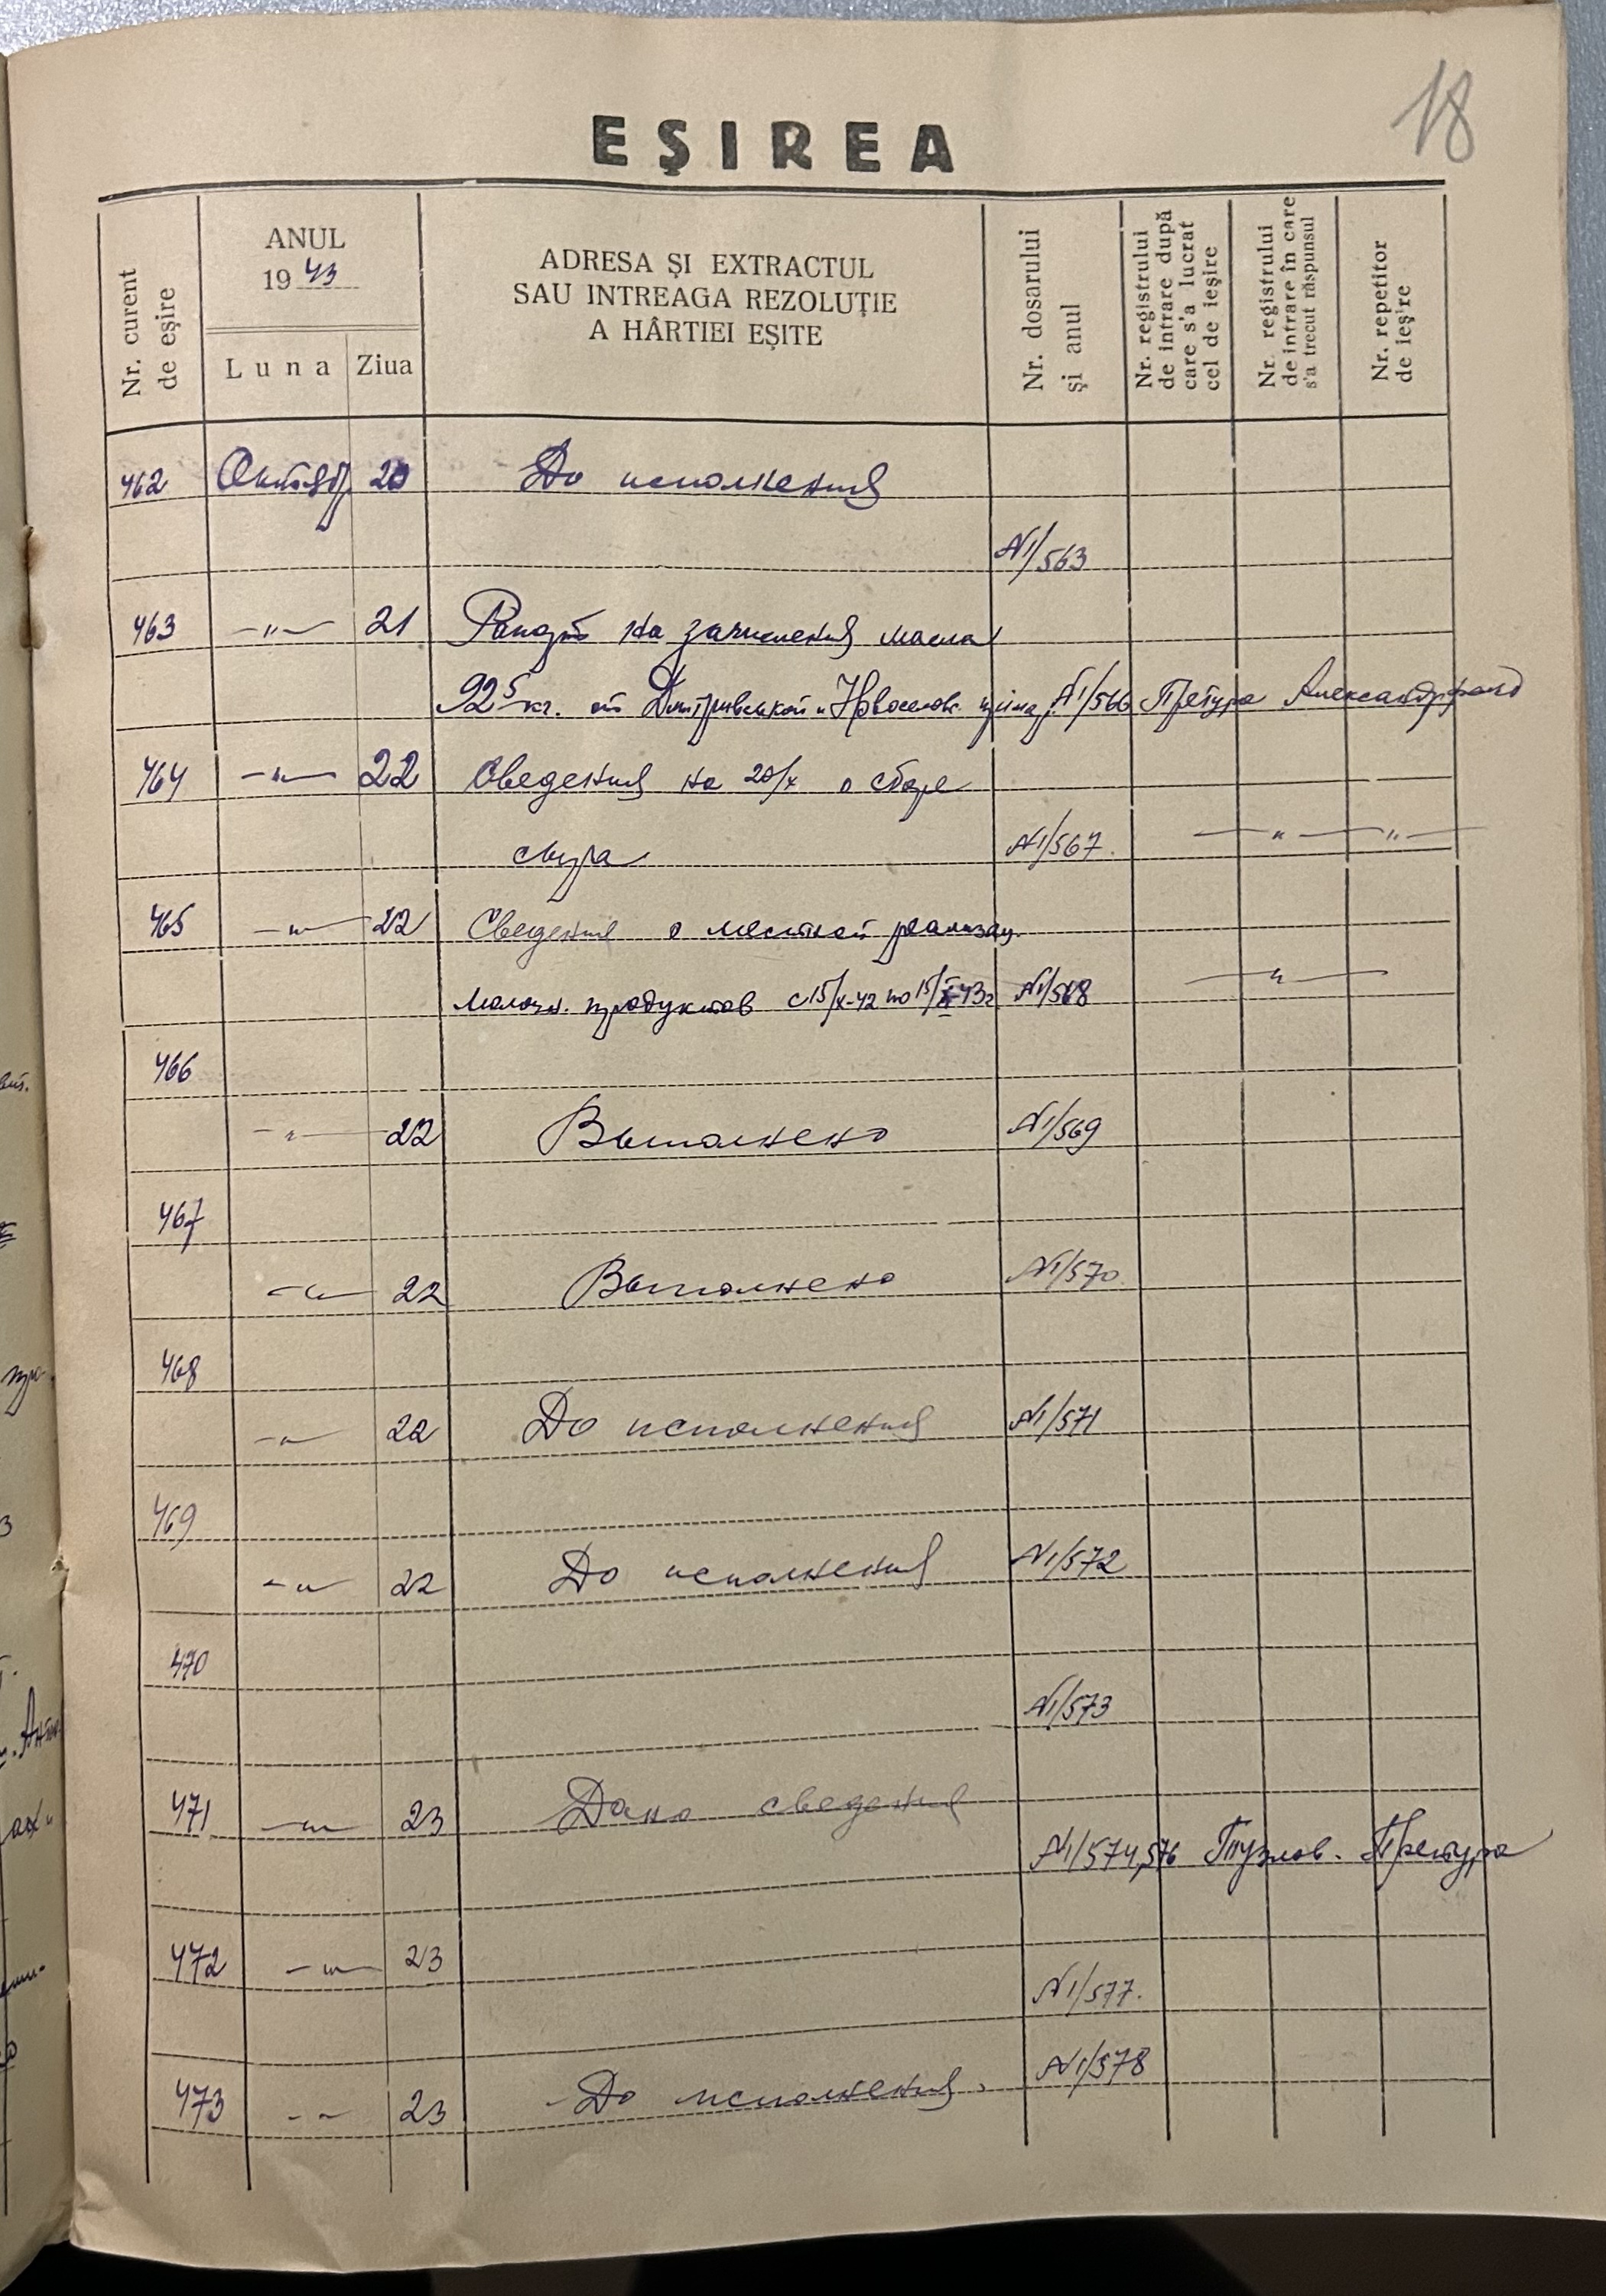 18
EȘIREA
Nr. curent de eșire
ANUL
1943
Luna
Ziua
ADRESA ȘI EXTRACTUL
SAU INTREAGA REZOLUȚIE
A HÂRTIEI EȘITE
Nr. dosarului și anul
Nr. registrului de intrare după care s'a lucrat cel de ieșire
Nr. registrului de intrare în care s'a trecut răspunsul
Nr. repetitor de ieșire
462 Октябр. 20 До исполнения
№1/563
463 —"— 21 Рапорт на зачисления масла
92⁵ кг. от Дмитривской и Новоселов. №1/566 Претура Александрфельд
464 —"— 22 Сведения на 20/X о сборе
сыра №1/567. —"— —"—
465 —"— 22 Сведения о местной реализац.
молочн. продуктов с 15/X-42 по 15/X-43г. №1/568 —"—
466
—"— 22 Выполнено №1/569
467
—"— 22 Выполнено №1/570
468
—"— 22 До исполнения №1/571
469
—"— 22 До исполнения №1/572
470
№1/573
471 —"— 23 Дано сведения
№1/574,576 Тузлов. Претура
472 —"— 23
№1/577.
№1/578
473 —"— 23 До исполнения.